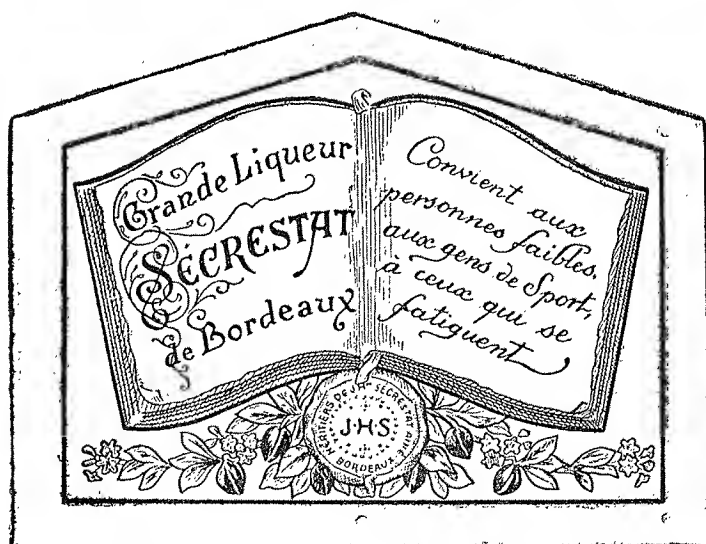 Grande Liqueur
SÉCRESTAT
de Bordeaux
Convient aux
personnes faibles,
aux gens de Sport,
à ceux qui se
fatiguent
J·H·S·
SÉCRESTAT AINÉ
BORDEAUX